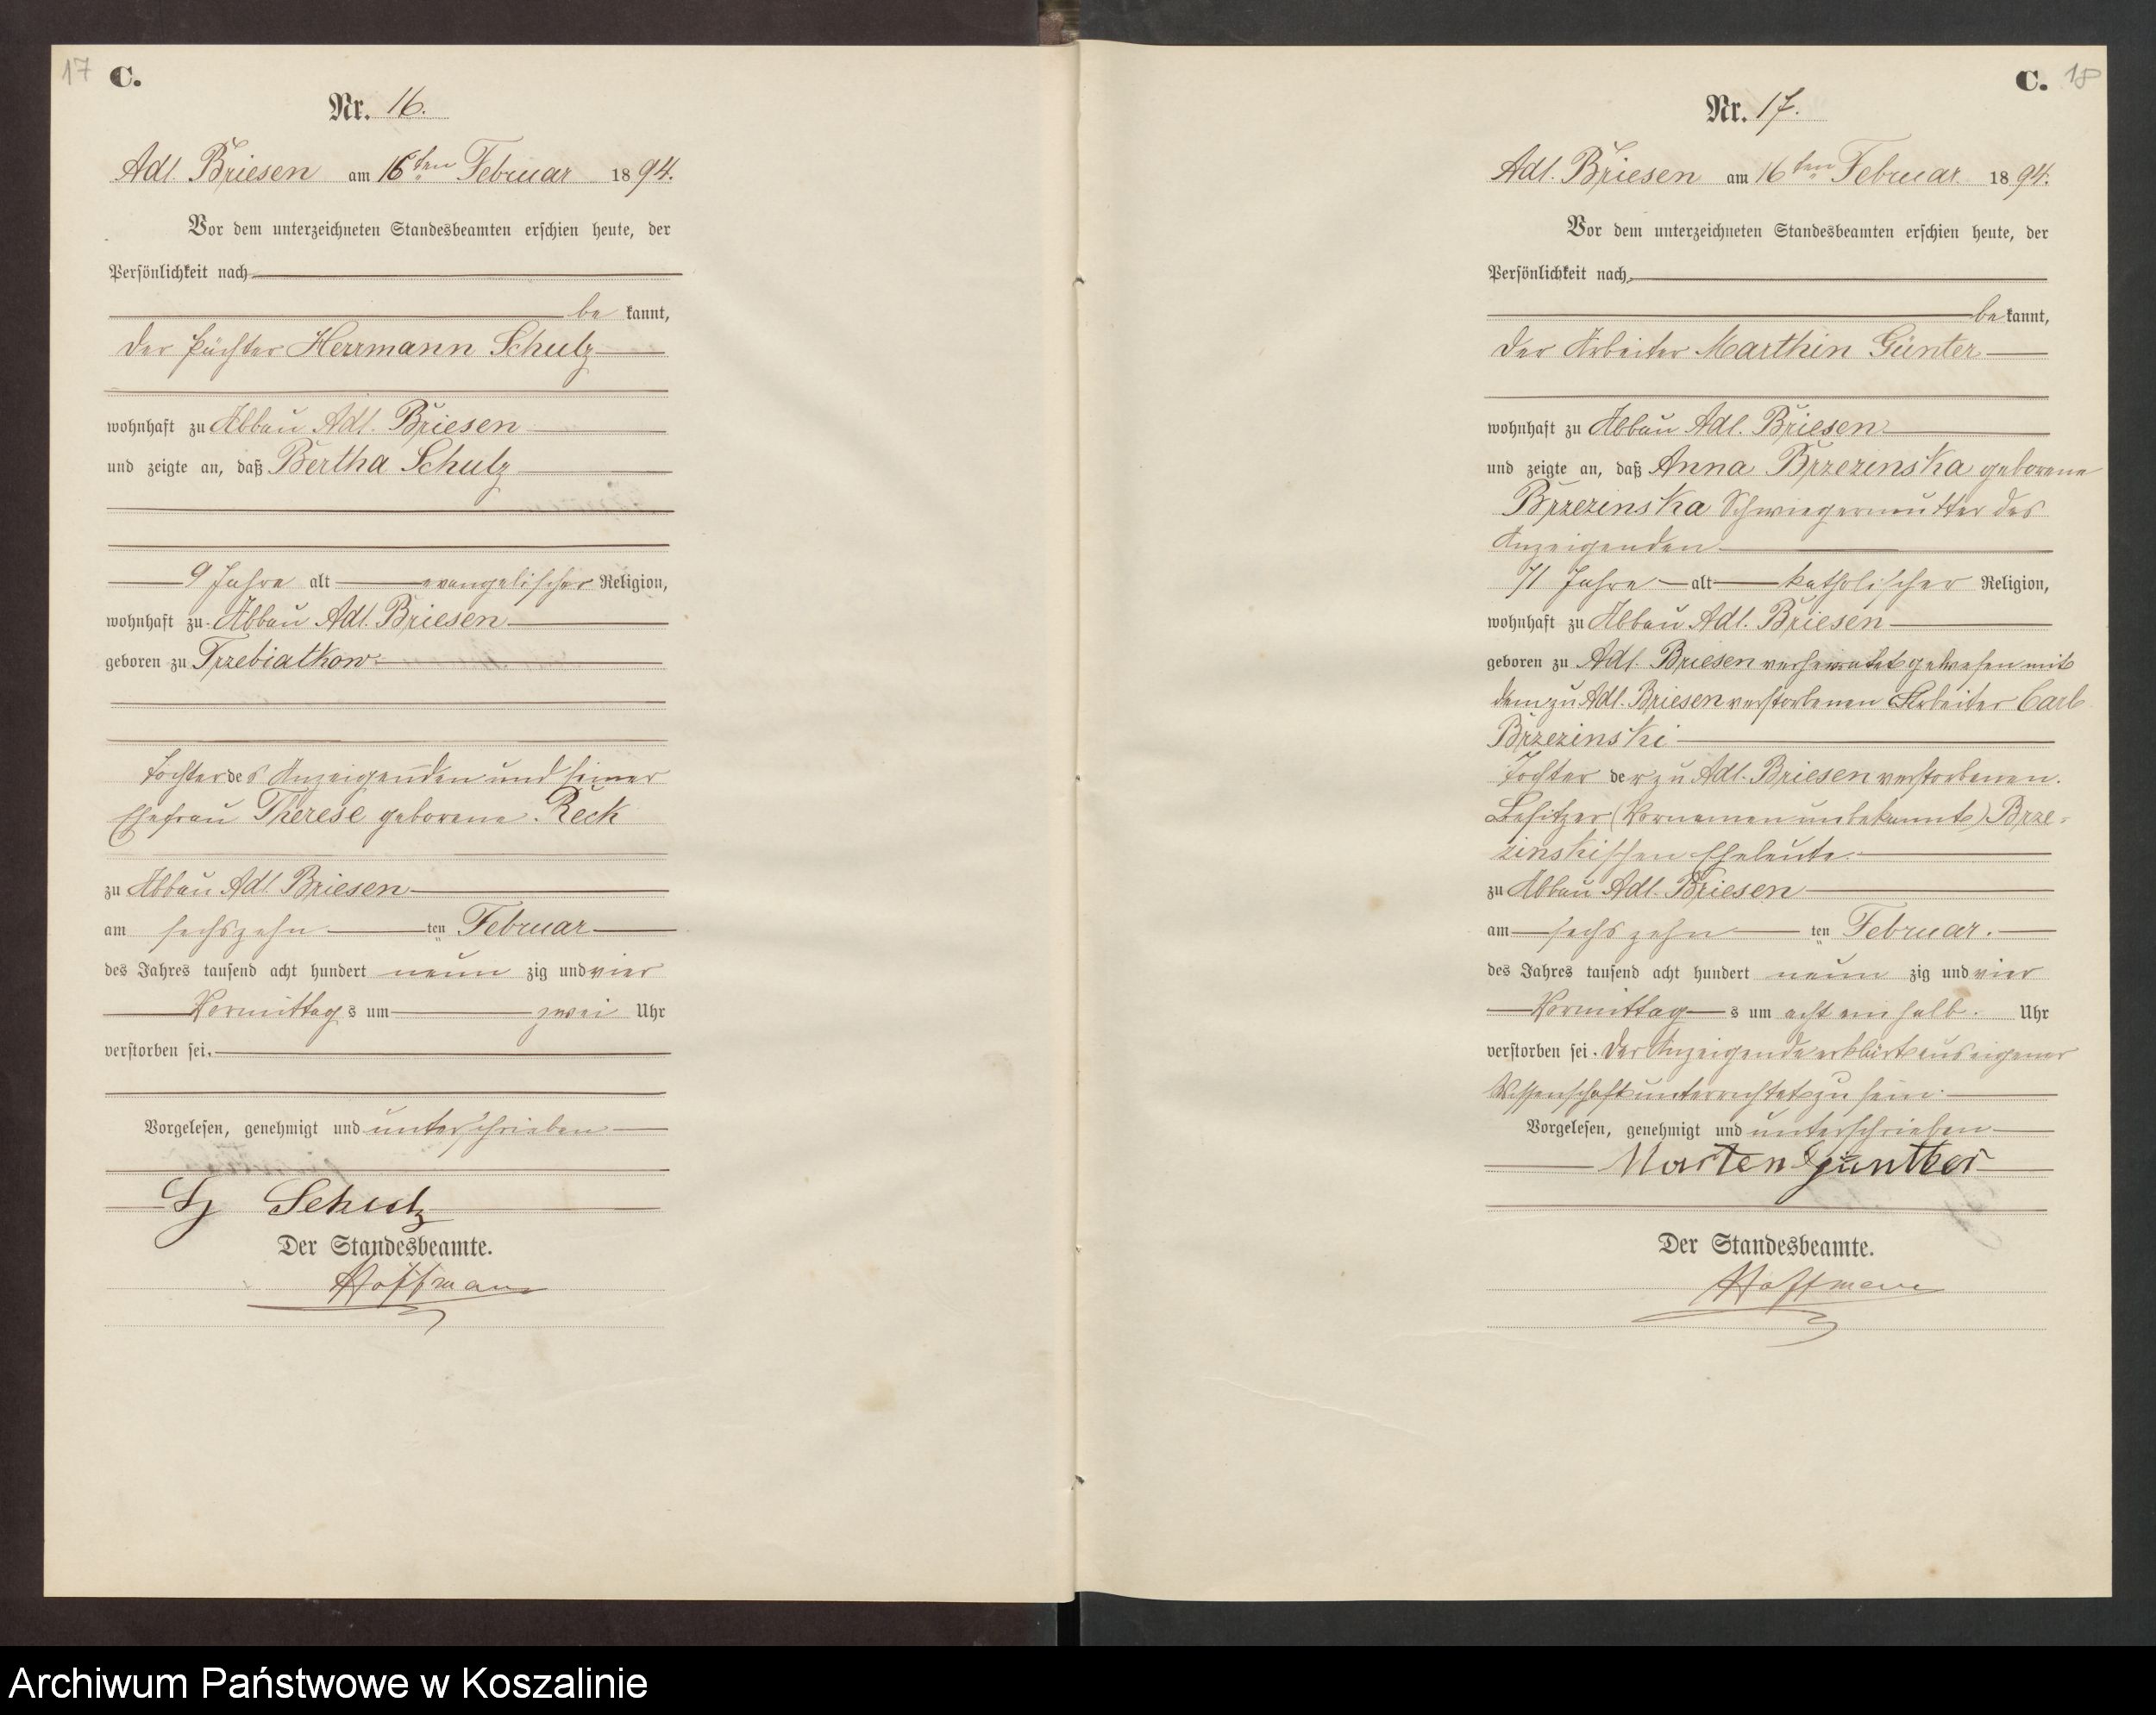 17 C.
Nr. 16.
Adl. Briesen am 16ten Februar 1894.
Vor dem unterzeichneten Standesbeamten erschien heute, der
Persönlichkeit nach
be kannt,
der Pächter Herrmann Schulz
wohnhaft zu Abbau Adl. Briesen
und zeigte an, daß Bertha Schulz
9 Jahre alt evangelischer Religion,
wohnhaft zu Abbau Adl. Briesen
geboren zu Trzebiatkow
Tochter des Anzeigenden und seiner
Ehefrau Therese geborene Reck
zu Abbau Adl. Briesen
am sechszehn ten Februar
des Jahres tausend acht hundert neun zig und vier
Vormittag s um zwei Uhr
verstorben sei.
Vorgelesen, genehmigt und unterschrieben
Schulz
Der Standesbeamte.
Hoffmann
C. 18
Nr. 17.
Adl. Briesen am 16ten Februar 1894.
Vor dem unterzeichneten Standesbeamten erschien heute, der
Persönlichkeit nach
be kannt,
der Arbeiter Marthin Günter
wohnhaft zu Abbau Adl. Briesen
und zeigte an, daß Anna Brzezinska geborene
Brzezinska Schwiegermutter des
Anzeigenden
71 Jahre alt katholischer Religion,
wohnhaft zu Abbau Adl. Briesen
geboren zu Adl. Briesen verheiratet gewesen mit
dem zu Adl. Briesen verstorbenen Arbeiter Carl
Brzezinski
Tochter der zu Adl. Briesen verstorbenen
Besitzer (Vornamen unbekannt) Brze-
zinskischen Eheleute.
zu Abbau Adl. Briesen
am sechszehn ten Februar.
des Jahres tausend acht hundert neun zig und vier
Vormittag s um acht ein halb. Uhr
verstorben sei. Der Anzeigende erklärt aus eigener
Wissenschaft unterrichtet zu sein.
Vorgelesen, genehmigt und unterschrieben
Marten Günther
Der Standesbeamte.
Hoffmann
Archiwum Państwowe w Koszalinie